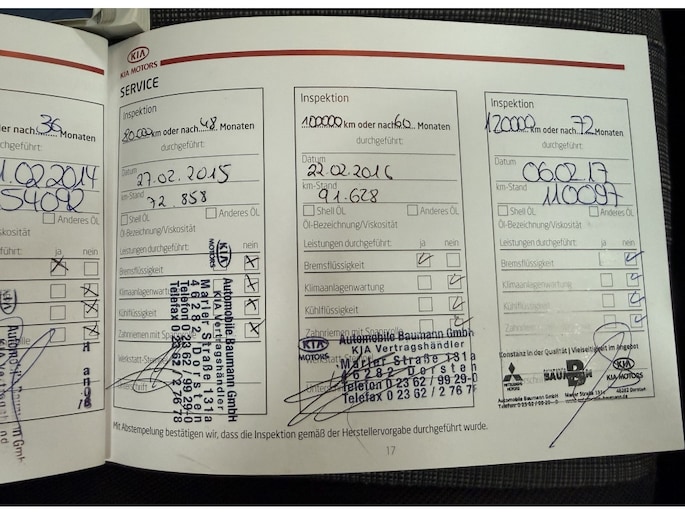 36
er nach Monaten
chgeführt:
1.02.2014
54092
Anderes ÖL
skosität
führt: ja nein
KIA
KIA MOTORS
SERVICE
Inspektion
80.000 km oder nach 48 Monaten
durchgeführt:
Datum
27.02.2015
km-Stand
72.858
Shell ÖL Anderes ÖL
Öl-Bezeichnung/Viskosität
Leistungen durchgeführt: nein
Bremsflüssigkeit
Klimaanlagenwartung
Kühlflüssigkeit
Zahnriemen mit
KIA MOTORS
Automobile Baumann GmbH
KIA Vertragshändler
Marler Straße 131a
46282 Dorsten
Telefon 0 23 62 / 99 29-0
Telefax 0 23 62 / 2 76 78
Inspektion
100000 km oder nach 60 Monaten
durchgeführt:
Datum
22.02.2016
km-Stand
91.628
Shell ÖL Anderes ÖL
Öl-Bezeichnung/Viskosität
Leistungen durchgeführt: ja nein
Bremsflüssigkeit
Klimaanlagenwartung
Kühlflüssigkeit
Zahnriemen mit Spannrolle
KIA MOTORS
Automobile Baumann GmbH
KIA Vertragshändler
Marler Straße 131a
46282 Dorsten
Telefon 0 23 62 / 99 29-0
Telefax 0 23 62 / 2 76 7
Inspektion
120000 km oder nach 72 Monaten
durchgeführt:
Datum
06.02.17
km-Stand
110097
Shell ÖL Anderes ÖL
Öl-Bezeichnung/Viskosität
Leistungen durchgeführt: ja nein
Bremsflüssigkeit
Klimaanlagenwartung
Kühlflüssigkeit
Constanz in der Qualität | Vielseitigkeit im Angebot
MITSUBISHI MOTORS
BAUMANN
KIA MOTORS
Automobile Baumann GmbH Marler Straße 131 46282 Dorsten
Mit Abstempelung bestätigen wir, dass die Inspektion gemäß der Herstellervorgabe durchgeführt wurde.
17